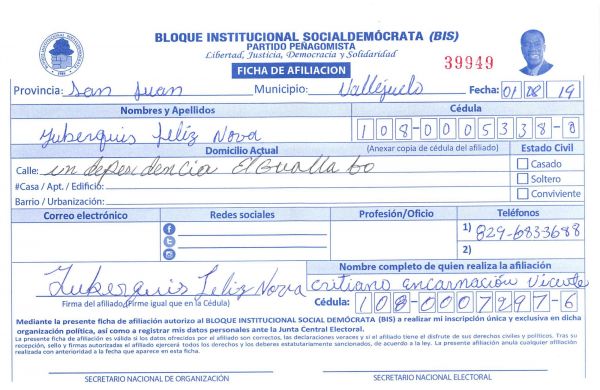 BLOQUE INSTITUCIONAL SOCIALDEMÓCRATA (BIS)
PARTIDO PEÑAGOMISTA
Libertad, Justicia, Democracia y Solidaridad
39949
FICHA DE AFILIACION
Provincia: San Juan Municipio: Vallejuelo Fecha: 01 08 19
Nombres y Apellidos Cédula
Yuberquis feliz Nova 108-0005338-8
Domicilio Actual (Anexar copia de cédula del afiliado) Estado Civil
Calle: independencia El Guallabo Casado
#Casa / Apt. / Edifició: Soltero
Barrio / Urbanización: Conviviente
Correo electrónico Redes sociales Profesión/Oficio Teléfonos
1) 829-6833688
2)
Nombre completo de quien realiza la afiliación
Yuberquis Feliz Nova critiano Encarnación Vicente
Firma del afiliado (Firme igual que en la Cédula) Cédula: 108-0007297-6
Mediante la presente ficha de afiliación autorizo al BLOQUE INSTITUCIONAL SOCIAL DEMÓCRATA (BIS) a realizar mi inscripción única y exclusiva en dicha
organización política, así como a registrar mis datos personales ante la Junta Central Electoral.
La presente ficha de afiliación es válida si los datos ofrecidos por el afiliado son correctos, las declaraciones veraces y si el afiliado tiene el disfrute de sus derechos civiles y políticos. Tras su
recepción, sello y firmas autorizadas el afiliado ejercerá todos los derechos y los deberes estatutariamente sancionados, de acuerdo a la ley. La presente afiliación anula cualquier afiliación
realizada con anterioridad a la fecha que aparece en esta ficha.
SECRETARIO NACIONAL DE ORGANIZACIÓN SECRETARIO NACIONAL ELECTORAL